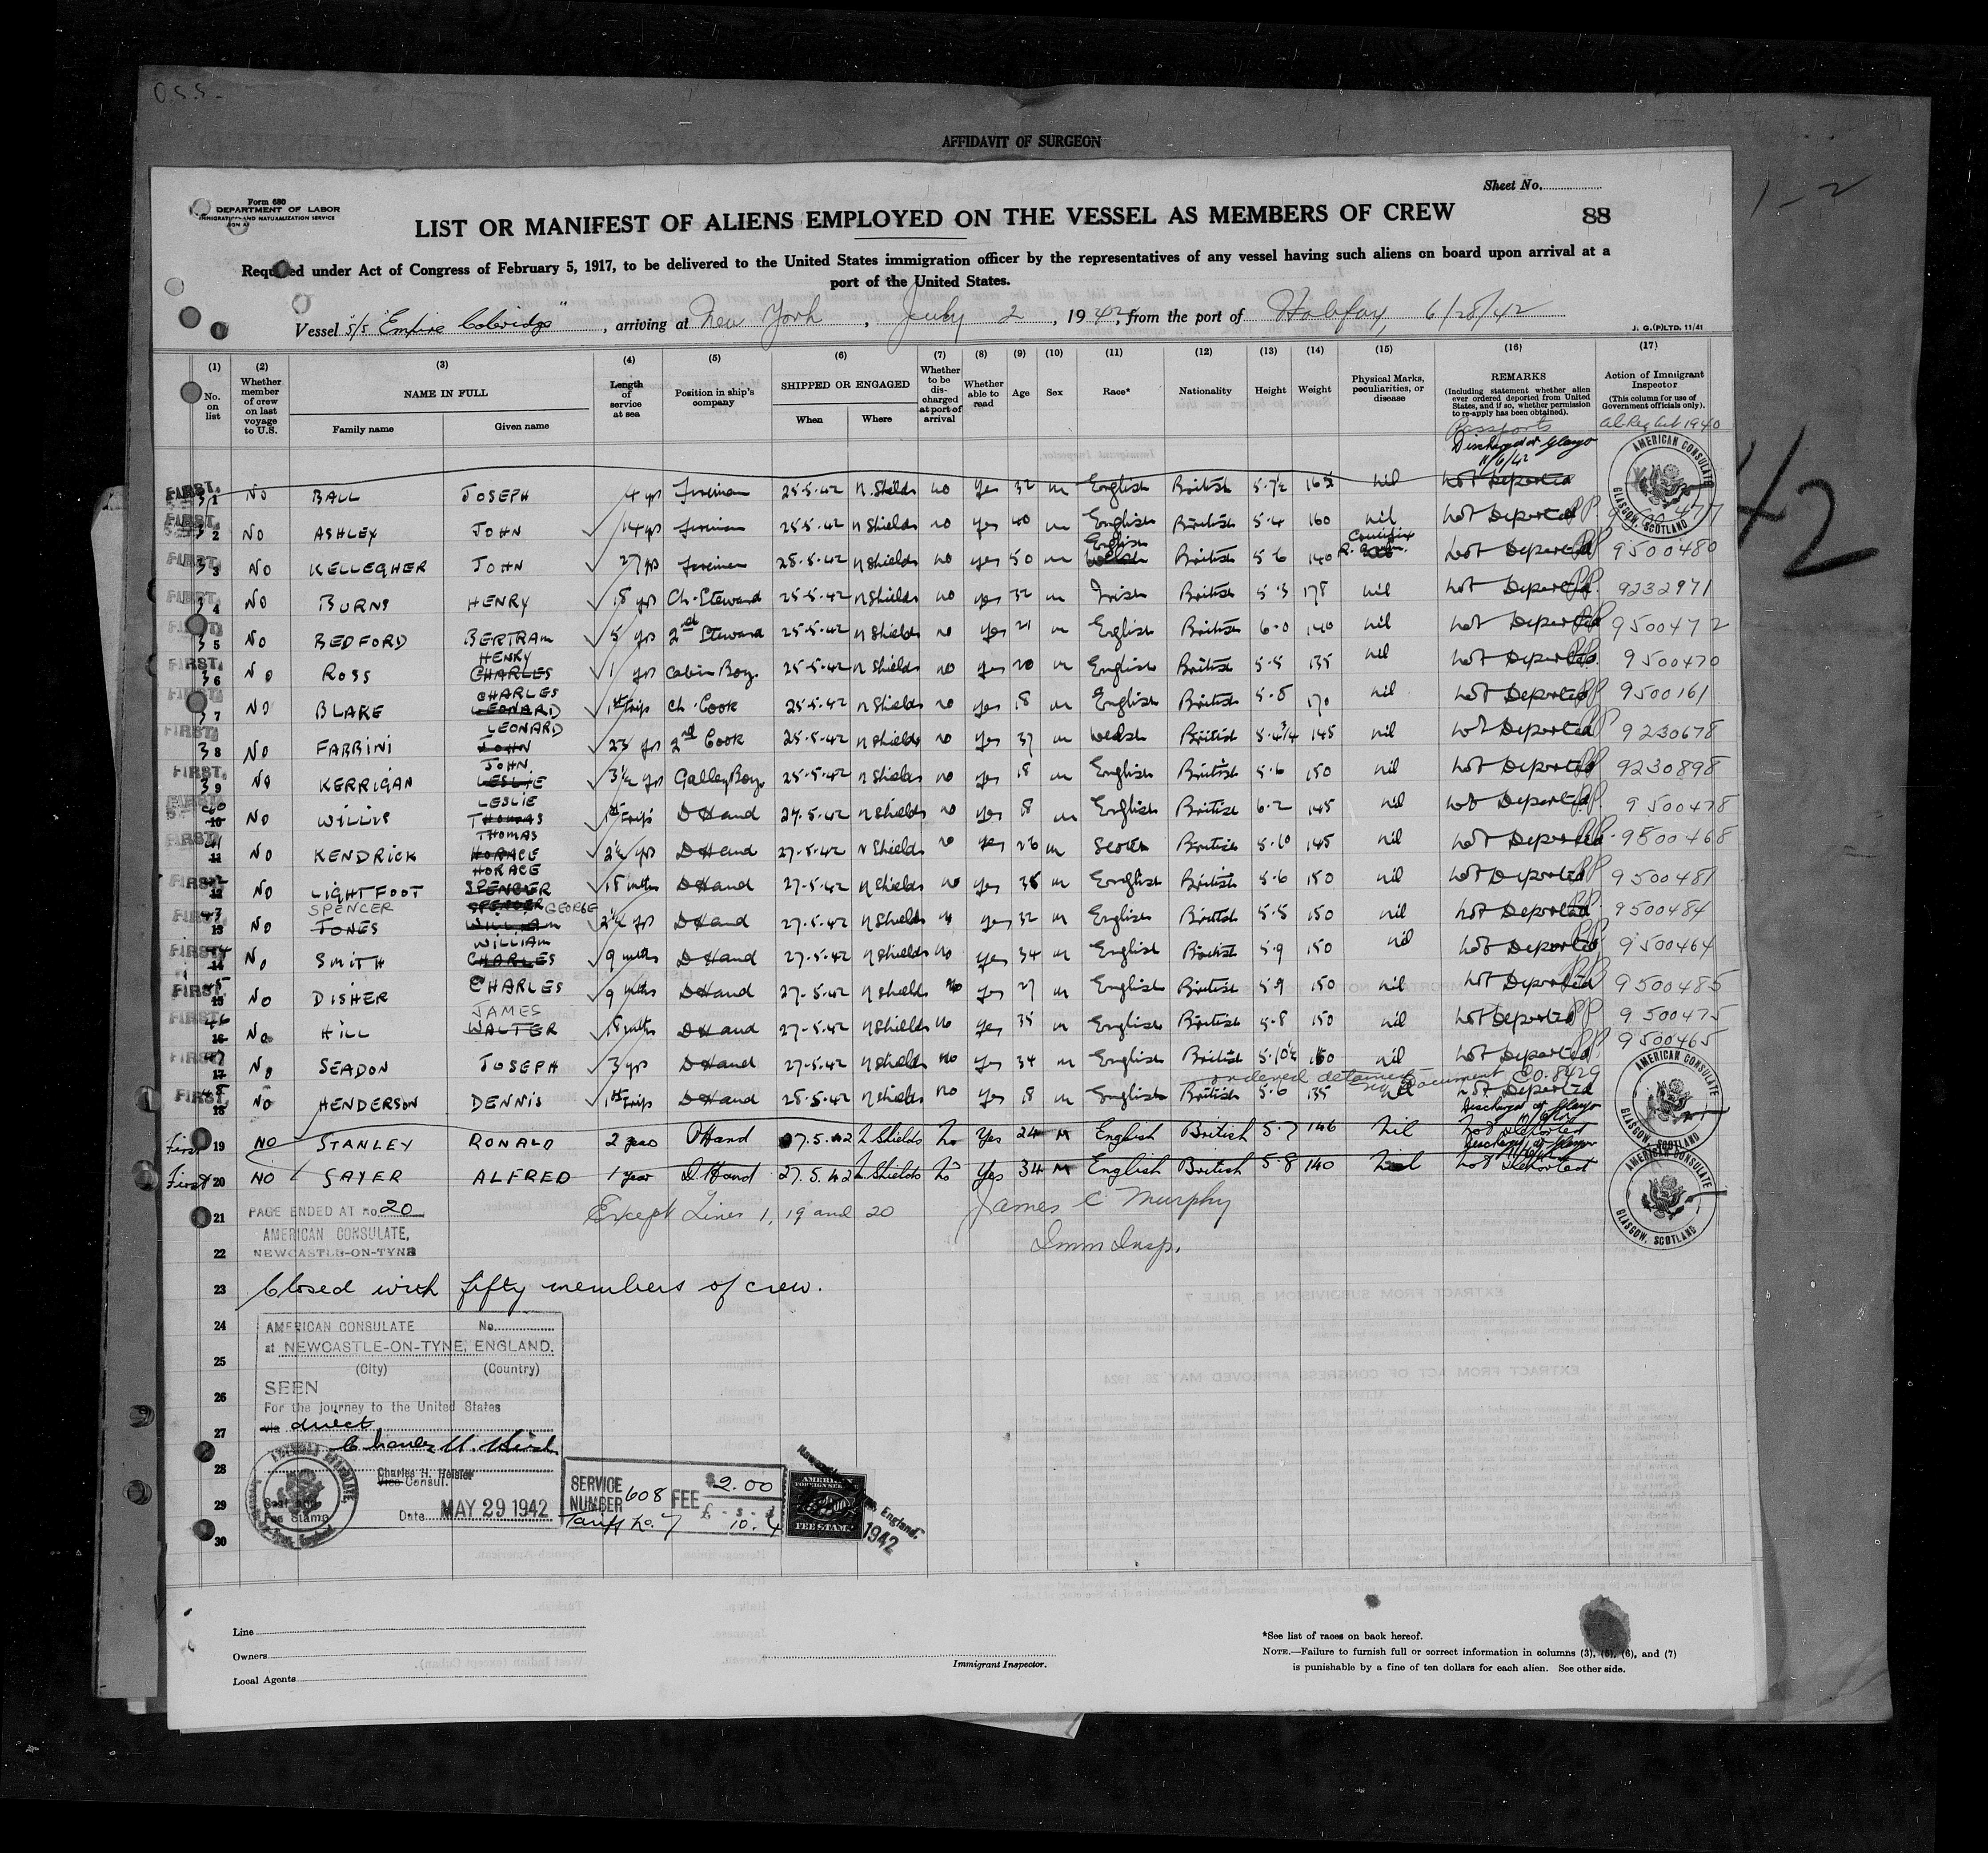 O.S.S.
AFFIDAVIT OF SURGEON
1-2
42
Sheet No.
Form 680
DEPARTMENT OF LABOR
IMMIGRATION AND NATURALIZATION SERVICE
LIST OR MANIFEST OF ALIENS EMPLOYED ON THE VESSEL AS MEMBERS OF CREW
88
Required under Act of Congress of February 5, 1917, to be delivered to the United States immigration officer by the representatives of any vessel having such aliens on board upon arrival at a
port of the United States.
Vessel s/s "Empire Coleridge", arriving at New York, July 2, 1942, from the port of Halifax, 6/28/42
J. G. (P)LTD. 11/41
(1) (2) (3) (4) (5) (6) (7) (8) (9) (10) (11) (12) (13) (14) (15) (16) (17)
No. on list
Whether member of crew on last voyage to U.S.
NAME IN FULL
Family name Given name
Length of service at sea
Position in ship's company
SHIPPED OR ENGAGED
When Where
Whether to be discharged at port of arrival
Whether able to read
Age
Sex
Race*
Nationality
Height
Weight
Physical Marks, peculiarities, or disease
REMARKS
(Including statement whether alien ever ordered deported from United States, and if so, whether permission to re-apply has been obtained).
Passports
Action of Immigrant Inspector
(This column for use of Government officials only).
Al Reg Act 1940
Discharged at Glasgow
11/6/42
AMERICAN CONSULATE GLASGOW, SCOTLAND
FIRST. 31 No BALL JOSEPH 4 yrs Fireman 25-5-42 N. Shields no Yes 32 m English British 5-7½ 165 nil Not Deported
FIRST. 32 No ASHLEY JOHN 14 yrs Fireman 25-5-42 N Shields no yes 40 m English British 5-4 160 nil Not Deported PP
FIRST. 33 No KELLEGHER JOHN 27 yrs Fireman 25-5-42 N Shields no yes 50 m English Welsh British 5-6 140 Crucifix Not Deported PP. 9500480
FIRST. 34 No BURNS HENRY 18 yrs Ch. Steward 25-5-42 N Shields no yes 32 m Irish British 5-3 178 nil Not Deported PP. 9232971
FIRST. 35 No BEDFORD BERTRAM 5 yrs 2nd Steward 25-5-42 N Shields no yes 21 m English British 6-0 140 nil Not Deported PP 9500472
FIRST. 36 No ROSS HENRY CHARLES 1 yrs Cabin Boy 25-5-42 N Shields no yes 20 m English British 5-5 135 nil Not Deported PP. 9500470
FIRST. 37 No BLAKE CHARLES LEONARD 1st Trip Ch. Cook 25-5-42 N Shields no yes 18 m English British 5-8 170 nil Not Deported PP 9500161
FIRST. 38 No FARRINI LEONARD JOHN 23 yrs 2nd Cook 25-5-42 N Shields no yes 37 m Welsh British 5-4¾ 145 nil Not Deported PP 9230678
FIRST. 39 No KERRIGAN JOHN LESLIE 3½ yrs Galley Boy 25-5-42 N Shields no yes 18 m English British 5-6 150 nil Not Deported PP 9230898
40 10 No WILLIS LESLIE THOMAS 1st Trip D Hand 27-5-42 N Shields no yes 18 m English British 6-2 145 nil Not Deported PP. 9500478
FIRST. 41 11 No KENDRICK THOMAS HORACE 2½ yrs D Hand 27-5-42 N Shields no yes 26 m Scotch British 5-10 145 nil Not Deported PP. 9500468
FIRST. 42 12 No LIGHTFOOT HORACE SPENCER 15 mths D Hand 27-5-42 N Shields no yes 35 m English British 5-6 150 nil Not Deported PP 9500481
FIRST. 43 13 No SPENCER JONES SPENCER GEORGE WILLIAM 2½ yrs D Hand 27-5-42 N Shields no yes 32 m English British 5-5 150 nil Not Deported PP. 9500484
FIRST. 44 14 No SMITH WILLIAM CHARLES 9 mths D Hand 27-5-42 N Shields no yes 34 m English British 5-9 150 nil Not Deported PP 9500464
FIRST. 45 15 No DISHER CHARLES 9 mths D Hand 27-5-42 N Shields no yes 27 m English British 5-9 150 nil Not Deported PP 9500485
FIRST. 46 16 No HILL JAMES WALTER 18 mths D Hand 27-5-42 N Shields no yes 35 m English British 5-8 150 nil Not Deported PP 9500475
FIRST. 47 17 No SEADON JOSEPH 3 yrs D Hand 27-5-42 N Shields no yes 34 m English British 5-10½ 150 nil Not Deported PP. 9500465
ordered detained no document CO. 8429
FIRST. 48 18 No HENDERSON DENNIS 1st Trip D Hand 28-5-42 N Shields no yes 18 m English British 5-6 135 nil Not Deported
Discharged at Glasgow
AMERICAN CONSULATE GLASGOW, SCOTLAND
First 19 NO STANLEY RONALD 2 years D Hand 27.5.42 N. Shields No Yes 24 M English British 5-7 146 Nil Not Deported
Discharged at Glasgow
First 20 NO SAYER ALFRED 1 year D. Hand 27.5.42 N. Shields No Yes 34 M English British 5-8 140 Nil Not Deported
AMERICAN CONSULATE GLASGOW, SCOTLAND
21 PAGE ENDED AT No 20 Except Lines 1, 19 and 20 James C Murphy
AMERICAN CONSULATE,
22 NEWCASTLE-ON-TYNE Imm Insp.
23 Closed with fifty members of crew.
24 AMERICAN CONSULATE No.
at NEWCASTLE-ON-TYNE, ENGLAND.
25 (City) (Country)
26 SEEN
For the journey to the United States
27 via direct
28 Charles H. Heisler
Vice Consul.
29 Seal and Fee Stamp
Date MAY 29 1942
30
SERVICE NUMBER 608 FEE $2.00
£ - s - d
Tariff No. 7 10. 4
AMERICAN FOREIGN SERVICE FEE STAMP
England.
1942
Line
Owners
Local Agents
Immigrant Inspector.
*See list of races on back hereof.
NOTE.—Failure to furnish full or correct information in columns (3), (5), (6), and (7)
is punishable by a fine of ten dollars for each alien. See other side.